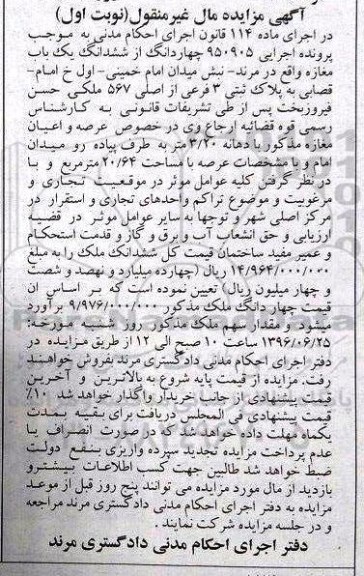 آگهی مزایده مال غیرمنقول(نوبت اول)
در اجرای ماده ۱۱۴ قانون اجرای احکام مدنی به موجب
پرونده اجرایی ۹۵۰۹۰۵ چهاردانگ از ششدانگ یک باب
مغازه واقع در مرند- نبش میدان امام خمینی- اول خ امام-
قصابی به پلاک ثبتی ۳ فرعی از اصلی ۵۶۷ ملکی حسن
فیروزبخت پس از طی تشریفات قانونی به کارشناس
رسمی قوه قضائیه ارجاع وی در خصوص عرصه و اعیان
مغازه مذکور با دهانه ۳/۲۰ متر به طرف پیاده رو میدان
امام و با مشخصات عرصه با مساحت ۲۰/۶۴ مترمربع و با
درنظر گرفتن کلیه عوامل موثر در موقعیت تجاری و
مرغوبیت و موضوع تراکم واحدهای تجاری و استقرار در
مرکز اصلی شهر و توجها به سایر عوامل موثر در قضیه
ارزیابی و حق انشعاب آب و برق و گاز و قدمت استحکام
و عمر مفید ساختمان قیمت کل ششدانگ ملک را به مبلغ
۱۴/۹۶۴/۰۰۰/۰۰۰ ریال (چهارده میلیارد و نهصد و شصت
و چهار میلیون ریال) تعیین نموده است که بر اساس ان
قیمت چهار دانگ ملک مذکور ۹/۹۷۶/۰۰۰/۰۰۰ برآورد
میشود و مقدار سهم ملک مذکور روز شنبه مورخه:
۱۳۹۶/۰۶/۲۵ ساعت ۱۰ صبح الی ۱۲ از طریق مزایده در
دفتر اجرای احکام مدنی دادگستری مرند بفروش خواهند
رفت. مزایده از قیمت پایه شروع به بالاترین و آخرین
قیمت پیشنهادی از جانب خریدار واگذار خواهد شد ۱۰٪
قیمت پیشنهادی فی المجلس دریافت برای بقیه بمدت
یکماه مهلت داده خواهد شد که در صورت انصراف یا
عدم پرداخت مزایده تجدید سپرده واریزی بنفع دولت
ضبط خواهد شد طالبین جهت کسب اطلاعات بیشتر و
بازدید از مال مورد مزایده می توانند پنج روز قبل از موعد
مزایده به دفتر اجرای احکام مدنی دادگستری مرند مراجعه
و در جلسه مزایده شرکت نمایند.
دفتر اجرای احکام مدنی دادگستری مرند